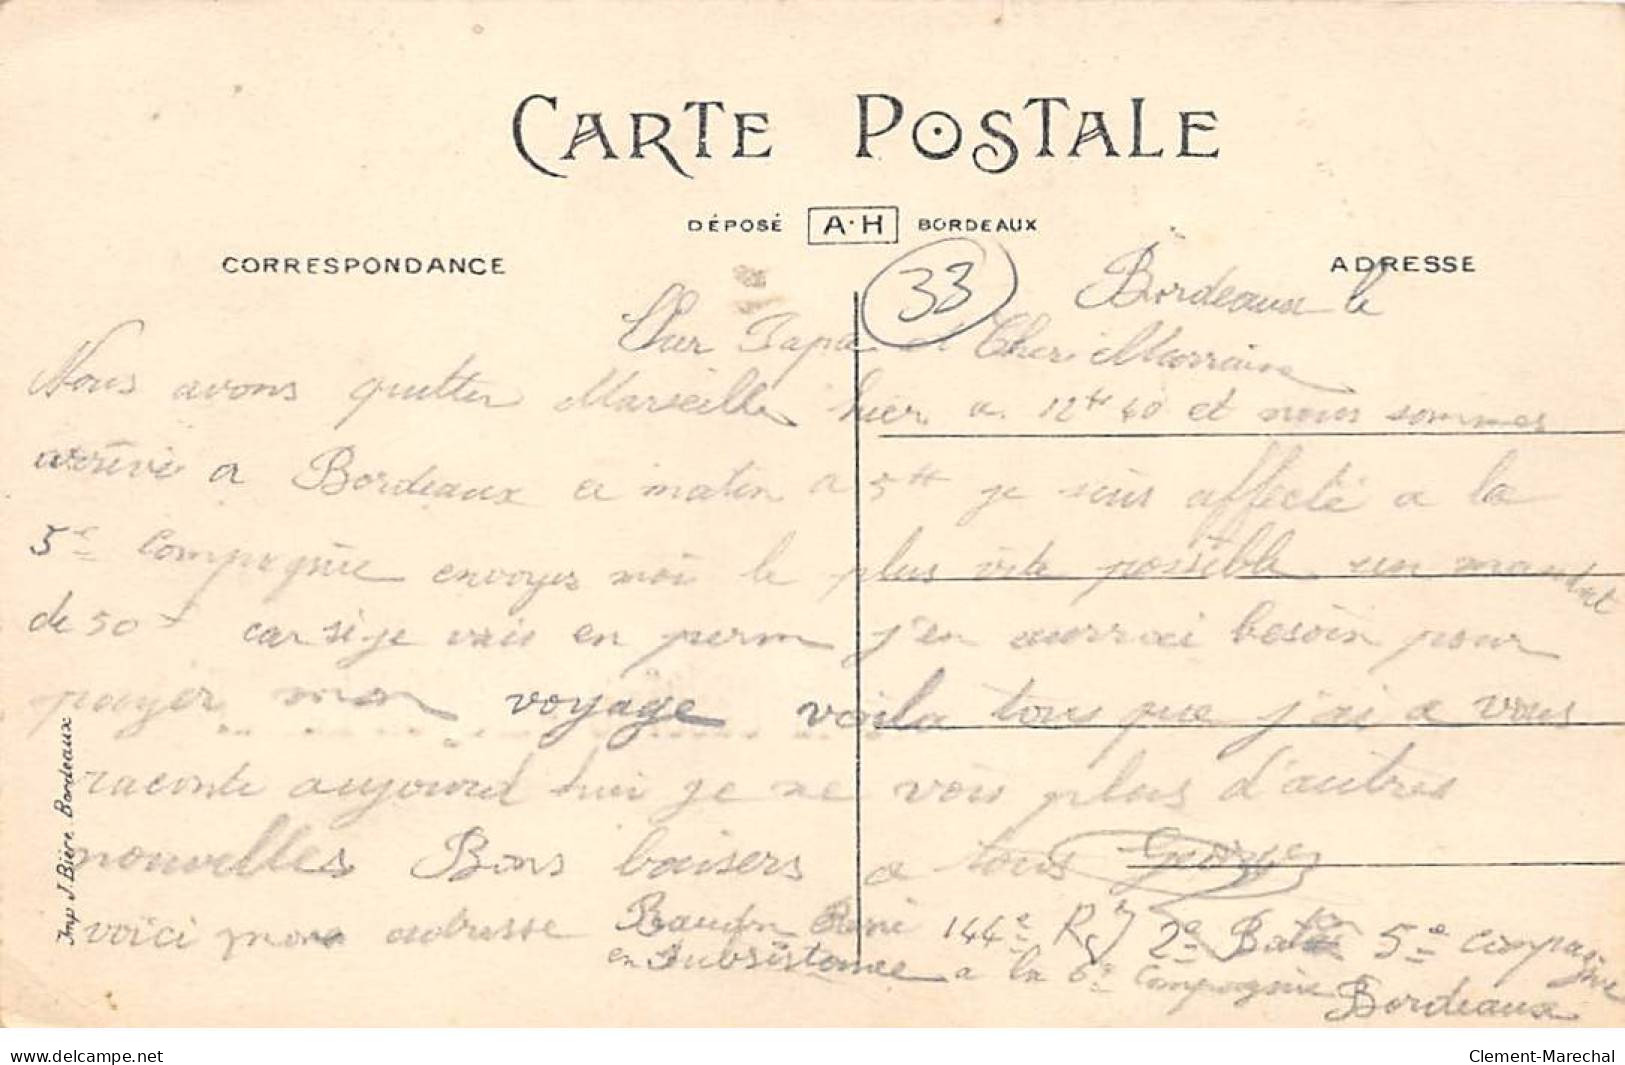 CARTE POSTALE
DÉPOSÉ A·H BORDEAUX
CORRESPONDANCE
ADRESSE
33
Bordeaux le
Cher Papa et Cher Marraine
Nous avons quitter Marseille hier a 12h 40 et nous sommes
arrivé a Bordeaux ce matin a 5h je suis affecté a la
5e Compagnie envoyer moi le plus vite possible un mandat
de 50 f car si je vais en perm j'en aurrai besoin pour
payer mon voyage voila tous que j'ai a vous
raconte aujourd hui je ne vois plus d'autres
nouvelles Bons baisers a tous Georges
voici mon adresse René 144e R 2e Bat 5e compagnie
en Subsistance a la 6e Compagnie Bordeaux
Imp J. Bière, Bordeaux
www.delcampe.net
Clement-Marechal